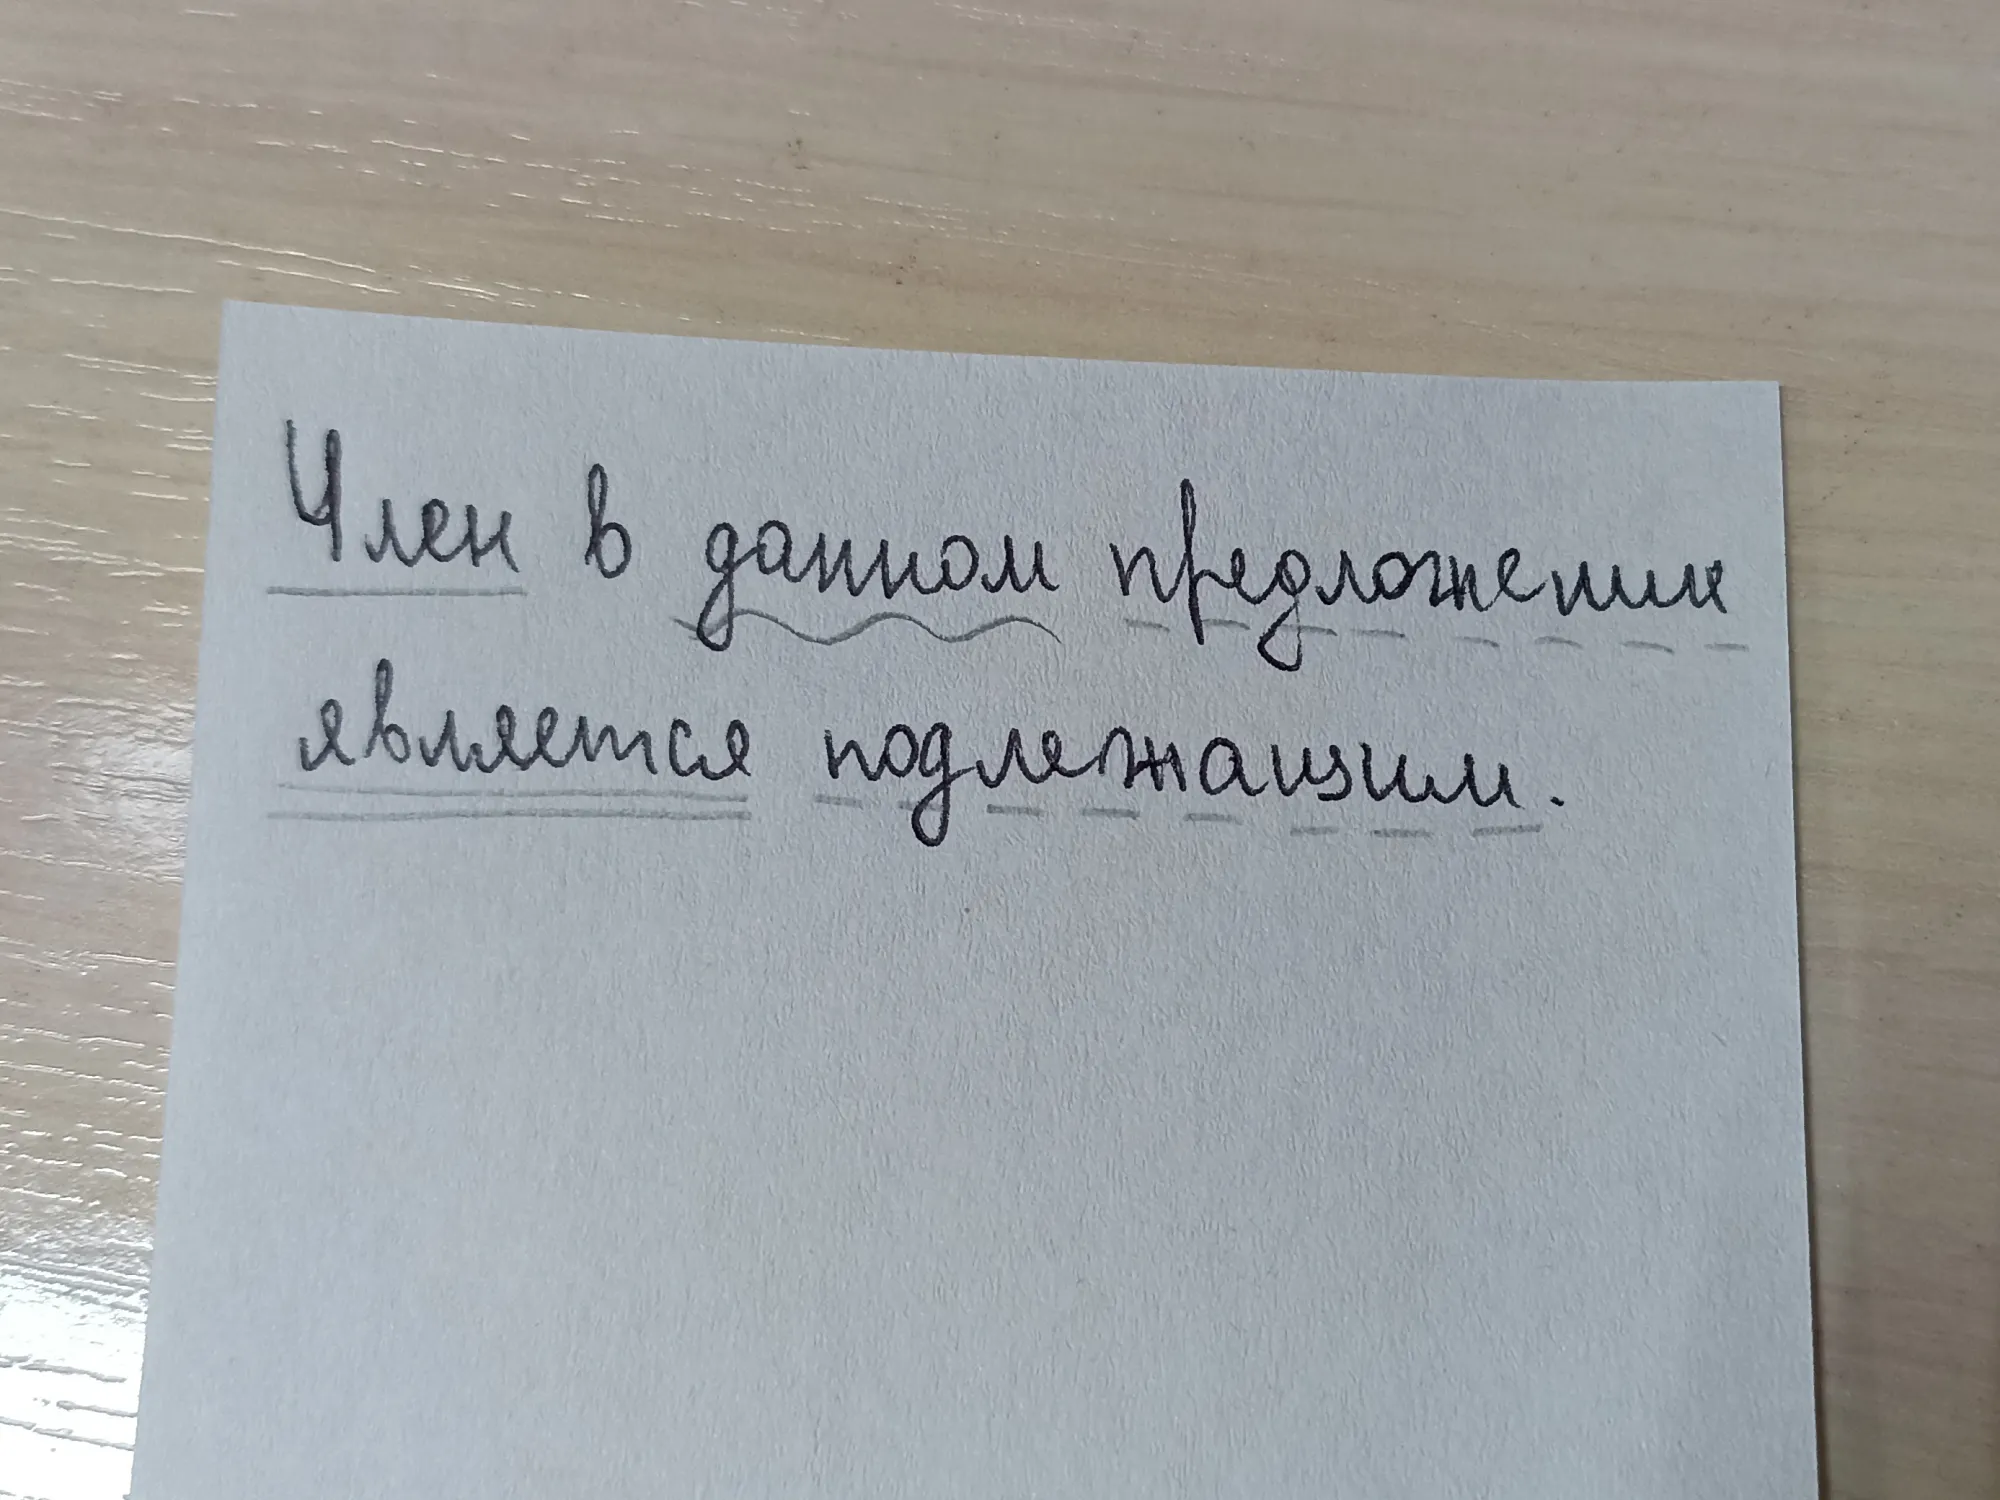 Член в данном предложении
является подлежащим.